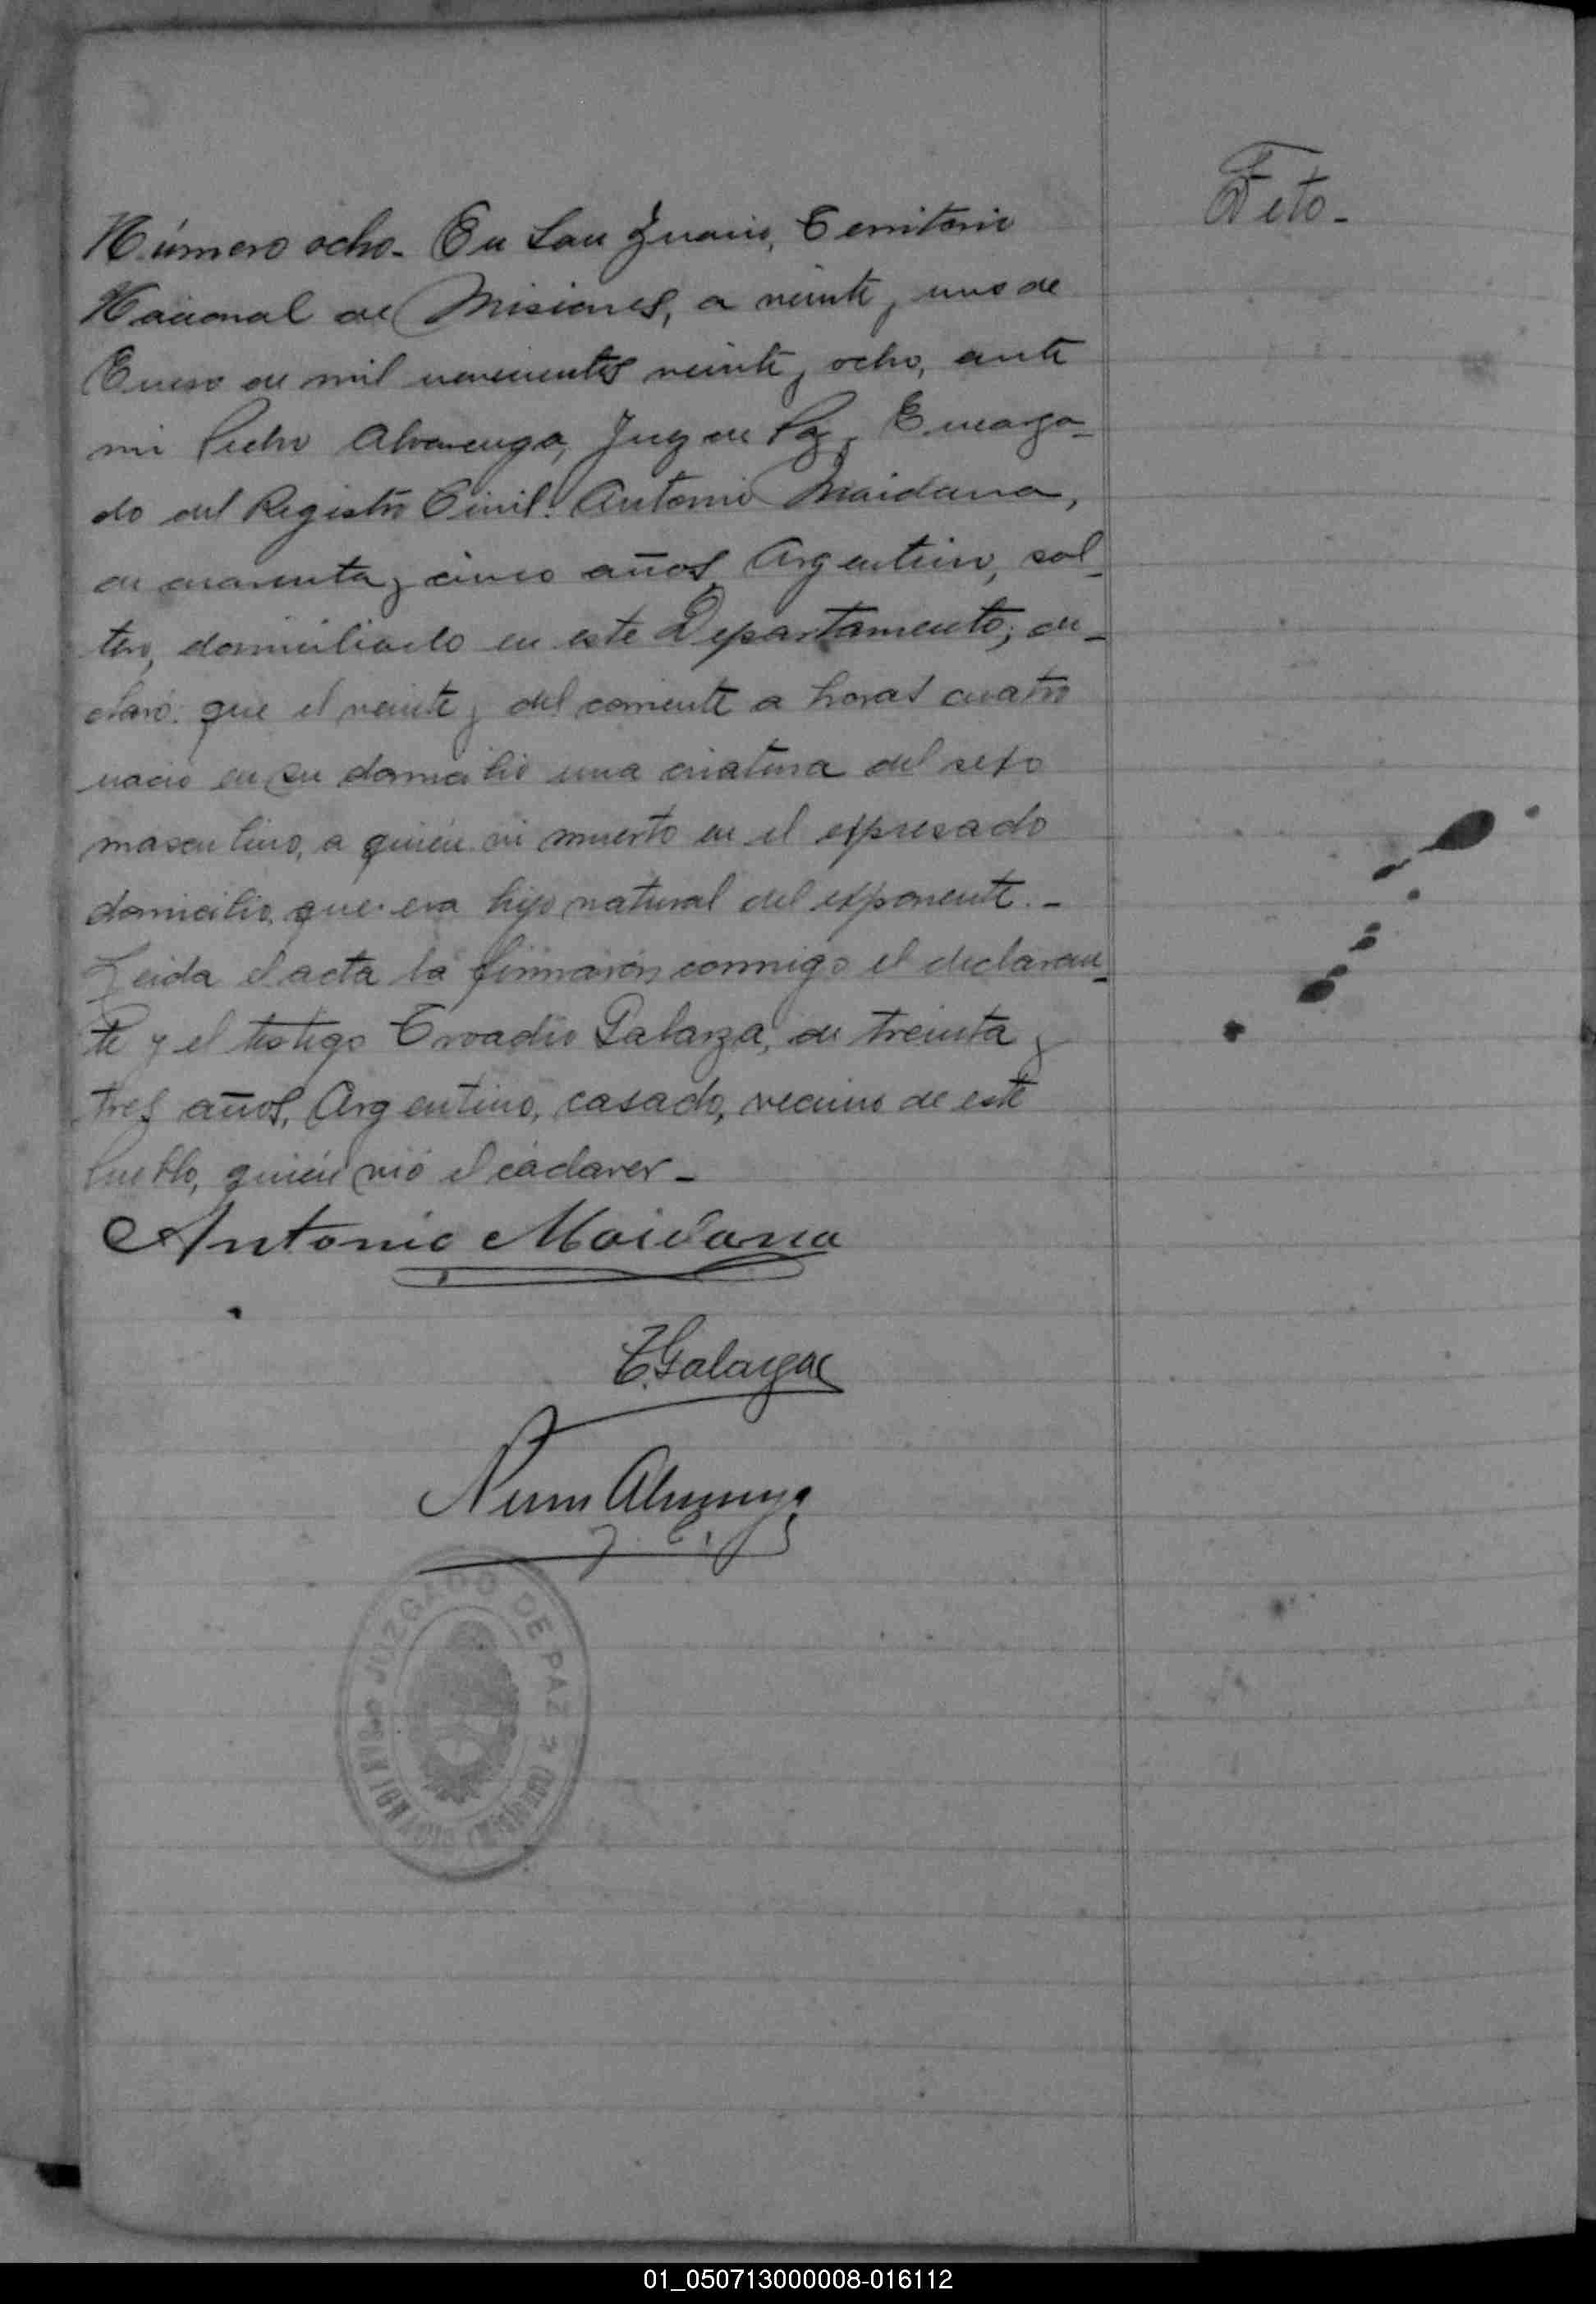 Feto-
Número ocho- En San Ignacio, Territorio
Nacional de Misiones, a veinte y uno de
Enero de mil novecientos veinte y ocho, ante
mi Pedro Alvarenga, Juez de Paz y Encarga-
do del Registro Civil: Antonio Maidana,
de cuarenta y cinco años, Argentino, sol-
tero, domiciliado en este Departamento; de-
claró: que el veinte y del corriente a horas cuatro
nació en su domicilio una criatura del sexo
masculino, a quién vi muerto en el expresado
domicilio, que era hijo natural del exponente.-
Leida el acta la firmaron conmigo el declaran-
te y el testigo Troadio Galarza, de treinta y
tres años, Argentino, casado, vecino de este
Pueblo, quién vió el cádaver-
Antonio Maidana
T. Galarza
Alvarenga
JUZGADO DE PAZ
SAN IGNACIO (Misiones)
01_050713000008-016112